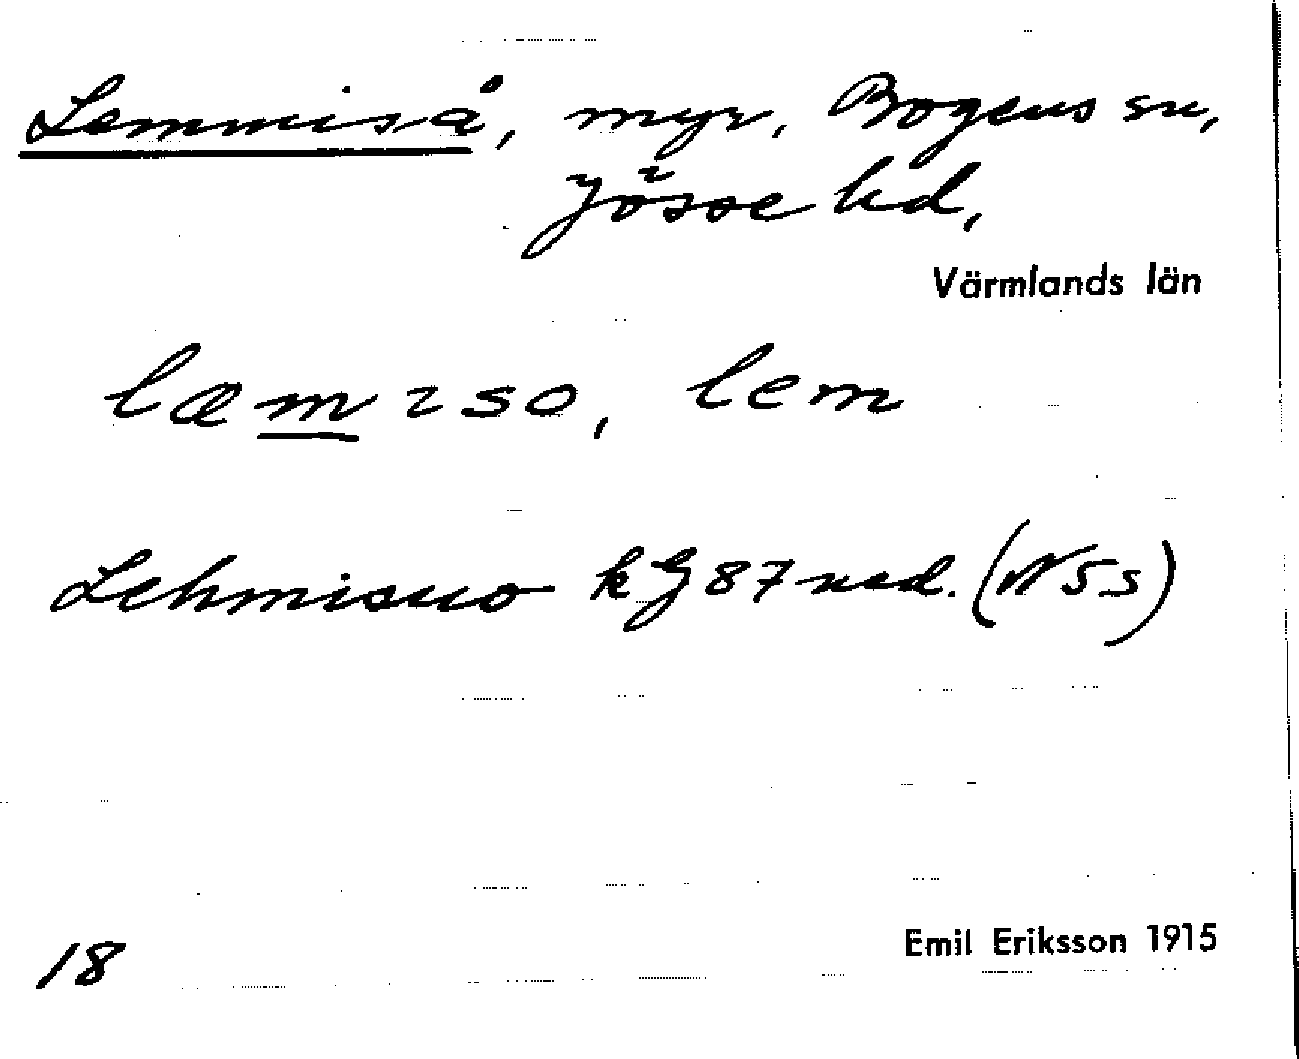 Lemmiså, myr, Bogens sn,
Jösse hd,
Värmlands län
læmıso, lem
Lehmisuo kG 87 ned. (NSs)
18
Emil Eriksson 1915